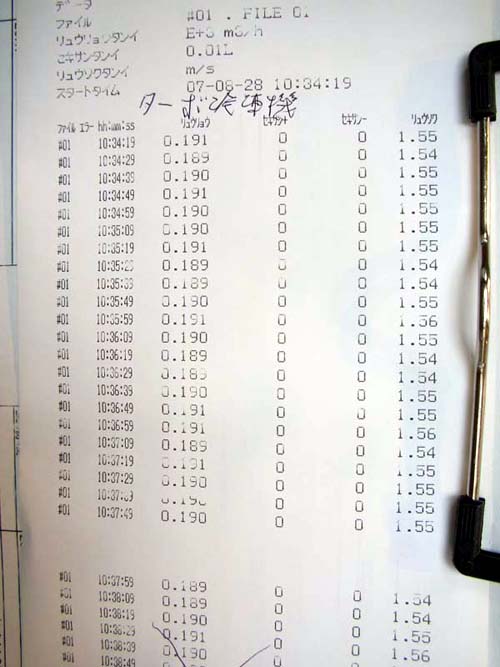 データ #01 . FILE 01
ファイル
リュウリョウタンイ E+3 m3/h
セキサンタンイ 0.01L
リュウソクタンイ m/s
スタートタイム 07-08-28 10:34:19
ターボ冷凍機
ファイル エラー hh:mm:ss リュウリョウ セキサン+ セキサン- リュウソク
#01 10:34:19 0.191 0 0 1.55
#01 10:34:29 0.189 0 0 1.54
#01 10:34:39 0.190 0 0 1.55
#01 10:34:49 0.191 0 0 1.55
#01 10:34:59 0.190 0 0 1.55
#01 10:35:09 0.190 0 0 1.55
#01 10:35:19 0.191 0 0 1.55
#01 10:35:29 0.189 0 0 1.54
#01 10:35:39 0.189 0 0 1.54
#01 10:35:49 0.190 0 0 1.55
#01 10:35:59 0.191 0 0 1.56
#01 10:36:09 0.190 0 0 1.55
#01 10:36:19 0.189 0 0 1.54
#01 10:36:29 0.189 0 0 1.54
#01 10:36:39 0.190 0 0 1.55
#01 10:36:49 0.191 0 0 1.55
#01 10:36:59 0.191 0 0 1.56
#01 10:37:09 0.189 0 0 1.54
#01 10:37:19 0.191 0 0 1.55
#01 10:37:29 0.190 0 0 1.55
#01 10:37:39 0.190 0 0 1.55
#01 10:37:49 0.190 0 0 1.55
#01 10:37:59 0.189 0 0 1.54
#01 10:38:09 0.189 0 0 1.54
#01 10:38:19 0.190 0 0 1.55
#01 10:38:29 0.191 0 0 1.55
#01 10:38:39 0.190 0 0 1.56
#01 10:38:49